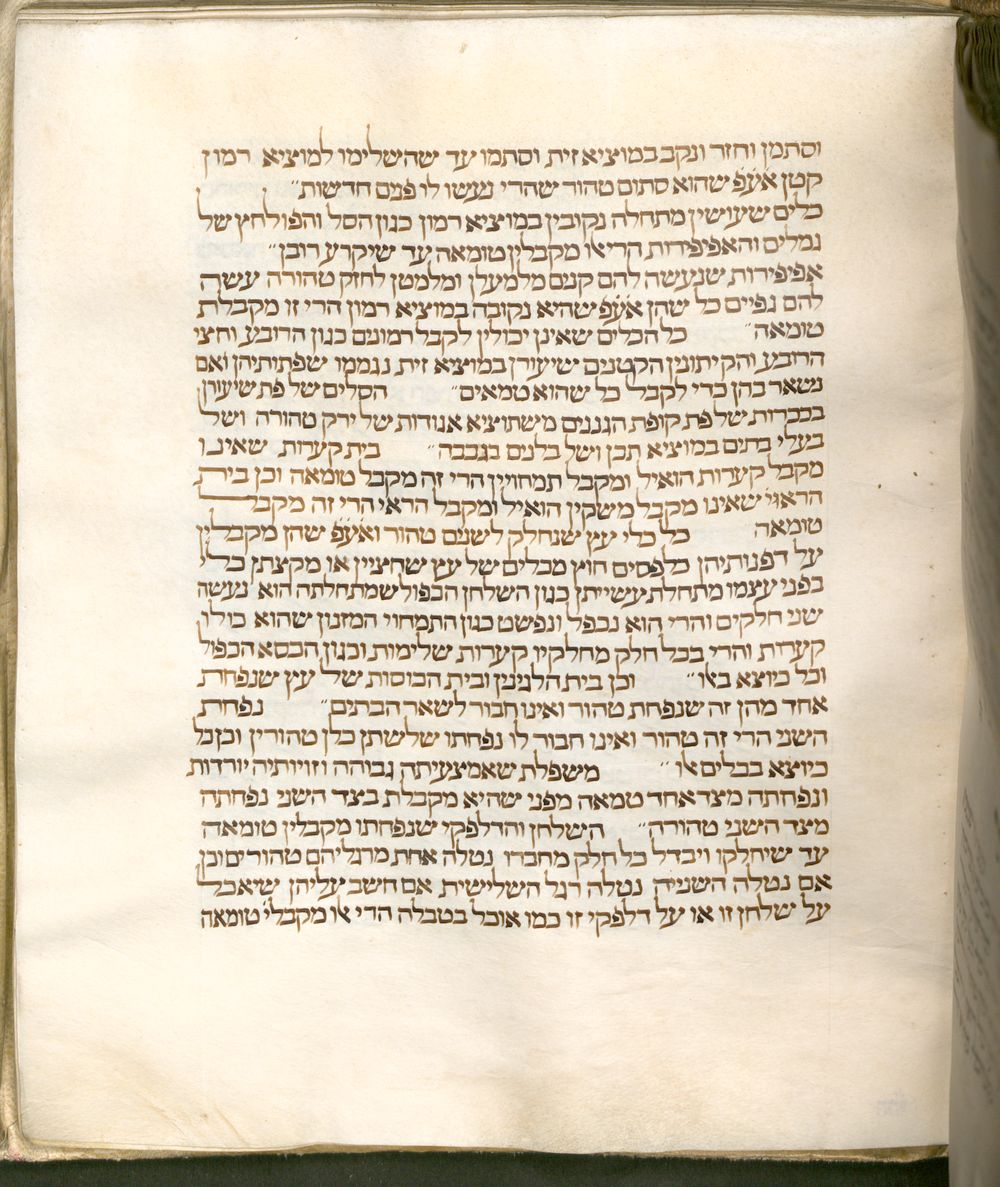 וסתמן וחזר ונקב במוציא זית וסתמו עד שהשלימו למוציא רמון
קטן אעפ שהוא סתום טהור שהרי נעשו לו פנים חדשות״
כלים שעושין מתחלה נקובין במוציא רמון כגון הסל והפולחץ של
גמלים והאפיפירות הרי אלו מקבלין טומאה עד שיקרע רובן״
אפיפירות שנעשה להם קנים מלמעלן ומלמטן לחזק טהורה עשה
להם גפיים כל שהן אעפ שהיא נקובה במוציא רמון הרי זו מקבלת
טומאה״ כל הכלים שאינן יכולין לקבל רמונים כגון הרובע וחצי
הרובע והקיתונין הקטנים שיעורן במוצא זית נגממו שפתותיהן ואם
נשאר בהן כדי לקבל כל שהוא טמאים״ הסלים של פת שיעורן
בככרות של פת קופת הגננים משתוציא אגודות של ירק טהורה ושל
בעלי בתים במוציא תבן ושל בלנים בגבבה״ בית קערות שאינו
מקבל קערות הואיל ומקבל תמחויין הרי זה מקבל טומאה וכן בית
הראיי שאינו מקבל משקין הואיל ומקבל הראי הרי זה מקבל
טומאה כל כלי עץ שנחלק לשנים טהור ואעפ שהן מקבלין
על דפנותיהן כלפסים חוץ מכלים של עץ שחציין או מקצתן כלי
בפני עצמו מתחלת עשייתן כגון השלחן הכפול שמתחלתה הוא נעשה
שני חלקים והרי הוא נכפל ונפשט כגון התמחוי המזנון שהוא כולו
קערות והרי בכל חלק מחלקיו קערות שלימות וכגון הכסא הכפול
וכל כיוצא באלו״ וכן בית הלגינין ובית הכוסות של עץ שנפחת
אחד מהן זה שנפחת טהור ואינו חבור לשאר הבתים״ נפחת
השני הרי זה טהור ואינו חבור לו נפחתו שלשתן כלן טהורין וכן כל
כיוצא בכלים אלו״ משפלת שאמצעיתה גבוהה וזויותיה יורדות
ונפחתה מצד אחד טמאה מפני שהיא מקבלת בצד השני נפחתה
מצד השני טהורה״ השלחן והדלפקי שנפחתו מקבלין טומאה
עד שיחלקו ויבדל כל חלק מחברו נטלה אחת מרגליהם טהורים וכן
אם נטלה השניה נטלה רגל השלישית אם חשב עליהן שיאכל
על שלחן זו או על דלפקי זו כמו אוכל בטבלה הרי אלו מקבלי׳ טומאה